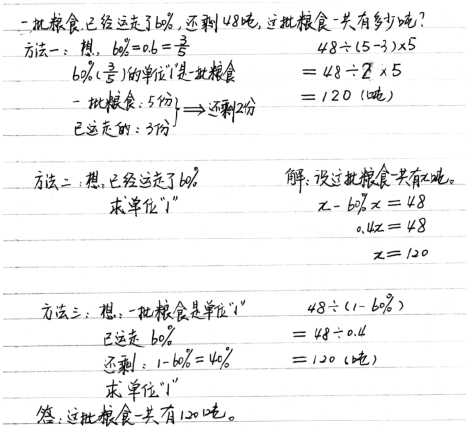 一批粮食,已经运走了60%,还剩48吨,这批粮食一共有多少吨?
方法一:想:60%=0.6=3/5 48÷(5-3)×5
60%(3/5)的单位"1"是一批粮食 =48÷2×5
一批粮食:5份 =120(吨)
已运走的:3份 ⇒还剩2份
方法二:想:已经运走了60% 解:设这批粮食一共有x吨。
求单位"1" x-60%x=48
0.4x=48
x=120
方法三:想:一批粮食是单位"1" 48÷(1-60%)
已运走60% =48÷0.4
还剩:1-60%=40% =120(吨)
求单位"1"
答:这批粮食一共有120吨。